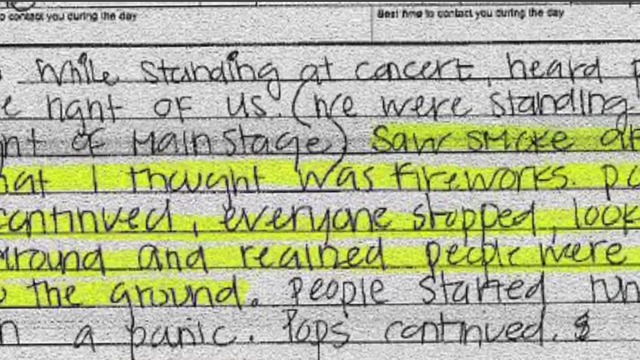 o contact you during the day Best time to contact you during the day
While standing at concert, heard
e right of us. (we were standing
nt of Main Stage) Saw smoke
hat I thought was fireworks. po
continued, everyone stopped, look
around and realized people were
the ground. People started run
n a panic. Pops continued. &